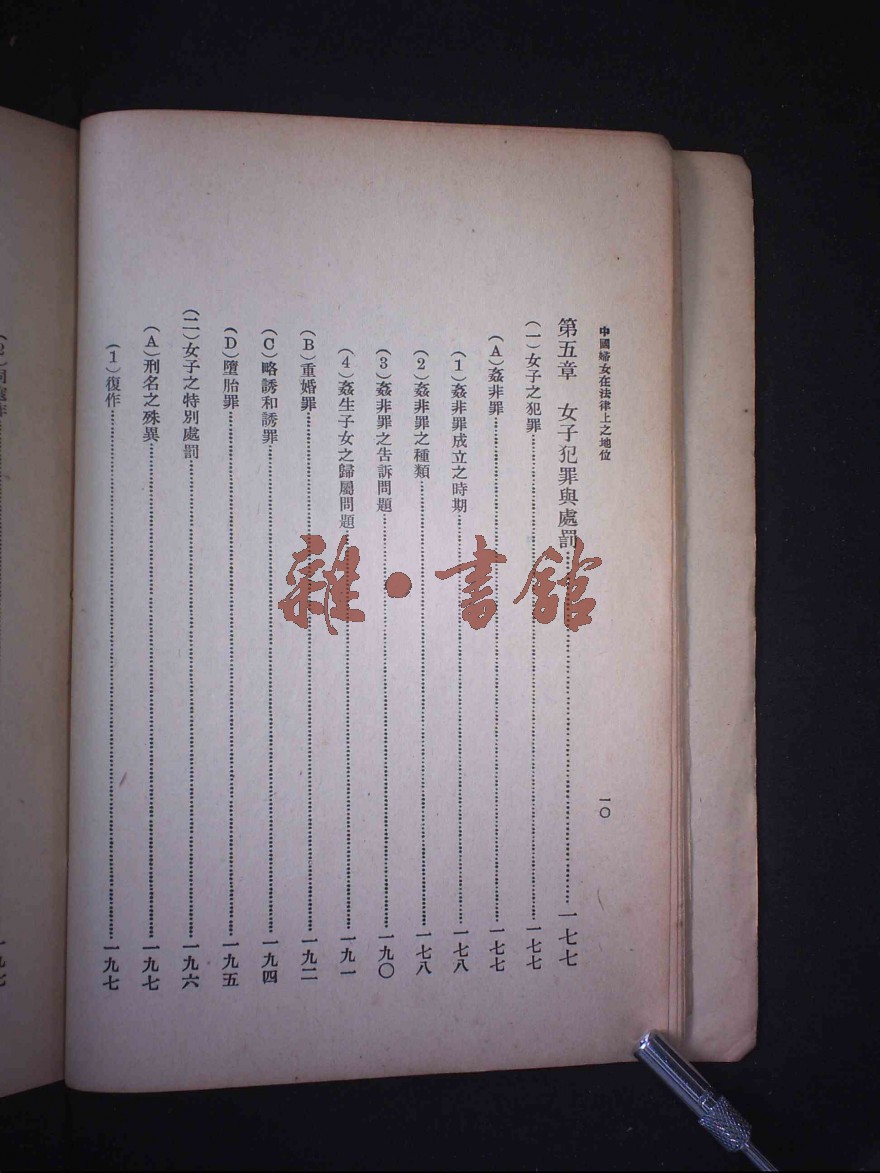 中國婦女在法律上之地位
一〇
第五章　女子犯罪與處罰……一七七
(一)女子之犯罪……一七七
(A)姦非罪……一七七
(1)姦非罪成立之時期……一七八
(2)姦非罪之種類……一七八
(3)姦非罪之告訴問題……一九〇
(4)姦生子女之歸屬問題……一九一
(B)重婚罪……一九二
(C)略誘和誘罪……一九四
(D)墮胎罪……一九五
(二)女子之特別處罰……一九六
(A)刑名之殊異……一九七
(1)復作……一九七
雜·書館